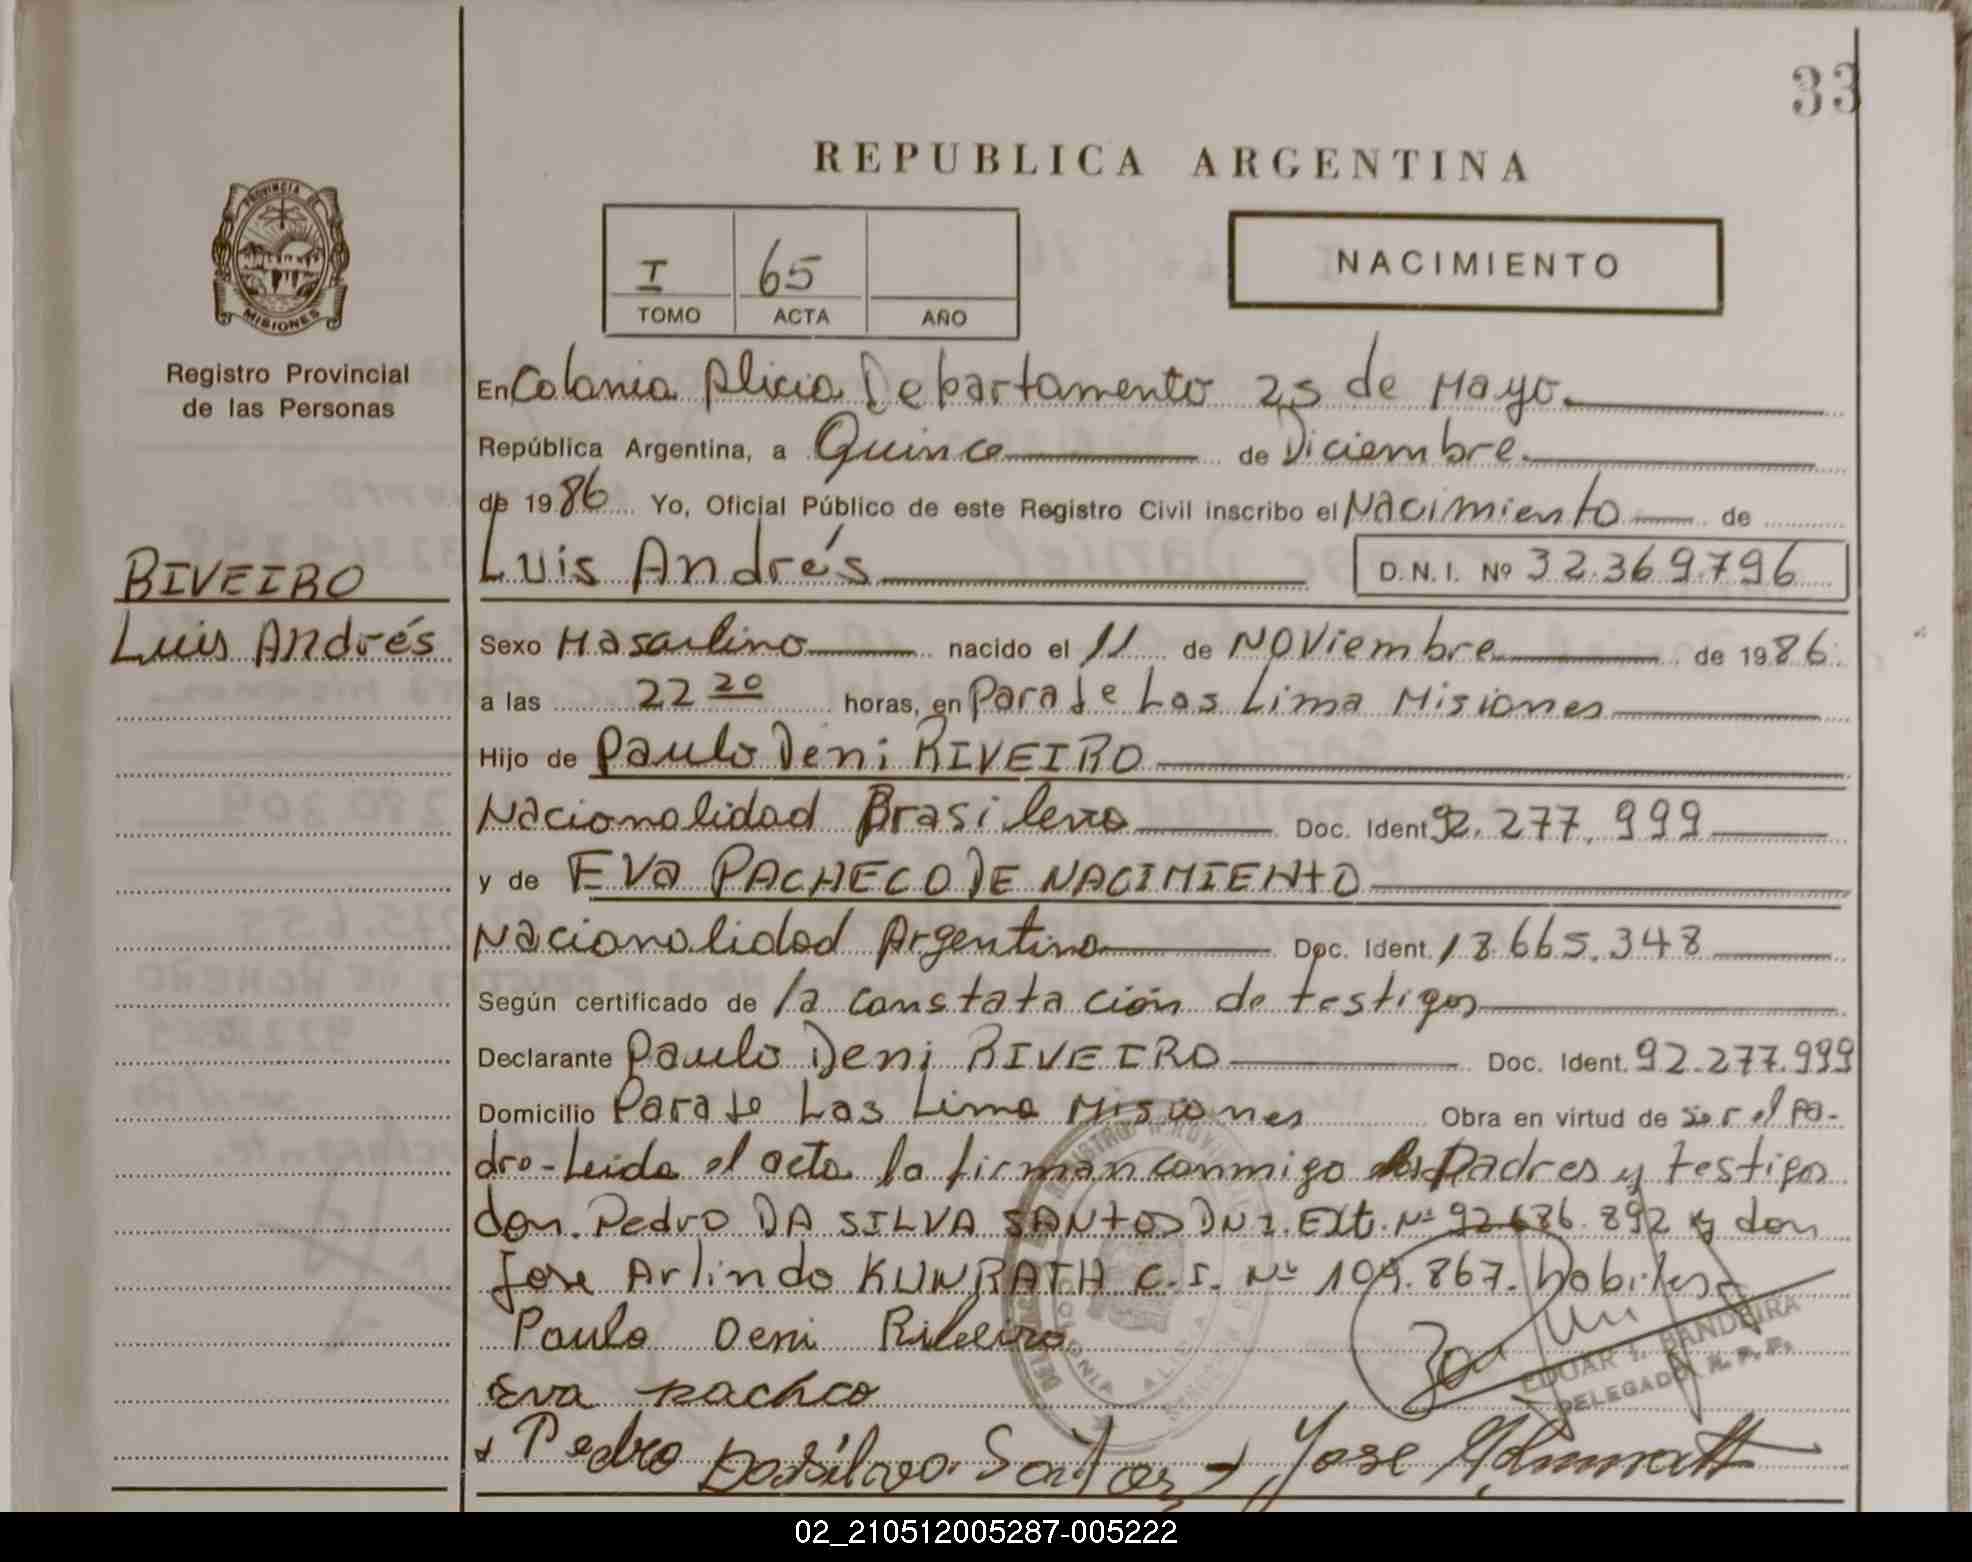 33
REPUBLICA ARGENTINA
PROVINCIA DE
MISIONES
Registro Provincial
de las Personas
I 65
TOMO ACTA AÑO
NACIMIENTO
En Colonia Alicia Departamento 25 de Mayo.
República Argentina, a Quince de Diciembre.
de 1986 Yo, Oficial Público de este Registro Civil inscribo el Nacimiento de
Luis Andrés D.N.I. Nº 32.369.796
RIVEIRO
Luis Andrés
Sexo Masculino nacido el 11 de Noviembre de 1986.
a las 22 20 horas, en Paraje Los Lima Misiones
Hijo de Paulo Deni RIVEIRO
Nacionalidad Brasilera Doc. Ident. 92.277.999
y de EVA PACHECO DE NACIMIENTO
Nacionalidad Argentina Doc. Ident. 18.665.348
Según certificado de la constatación de testigos
Declarante Paulo Deni RIVEIRO Doc. Ident. 92.277.999
Domicilio Paraje Los Lima Misiones Obra en virtud de ser el pa-
dre-Leida el acta la firman conmigo los Padres y testigos
don. Pedro DA SILVA SANTOS DNI. Ext. Nº 92.686.892 y don
Jose Arlindo KUNRATH C.I. Nº 109.867. habiles.
Paulo Deni Ribeiro
EDUAR I. BANDEIRA
DELEGADO R. P. P.
COLONIA ALICIA
Eva pachco
Pedro Dasilva Santos Jose
02_210512005287-005222